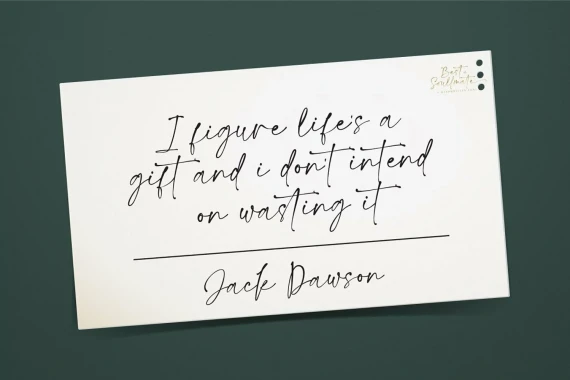 Best
Soulmate
I figure life's a
gift and i don't intend
on wasting it
Jack Dawson